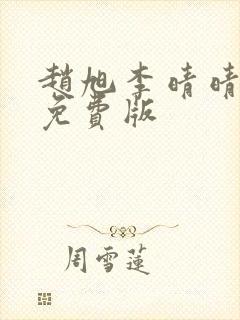 趙旭李晴晴
免費版
周雪蓮